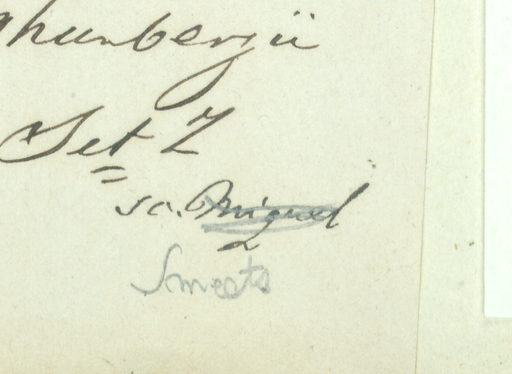 thunbergii
Set 2
sc. Miquel
Smeets